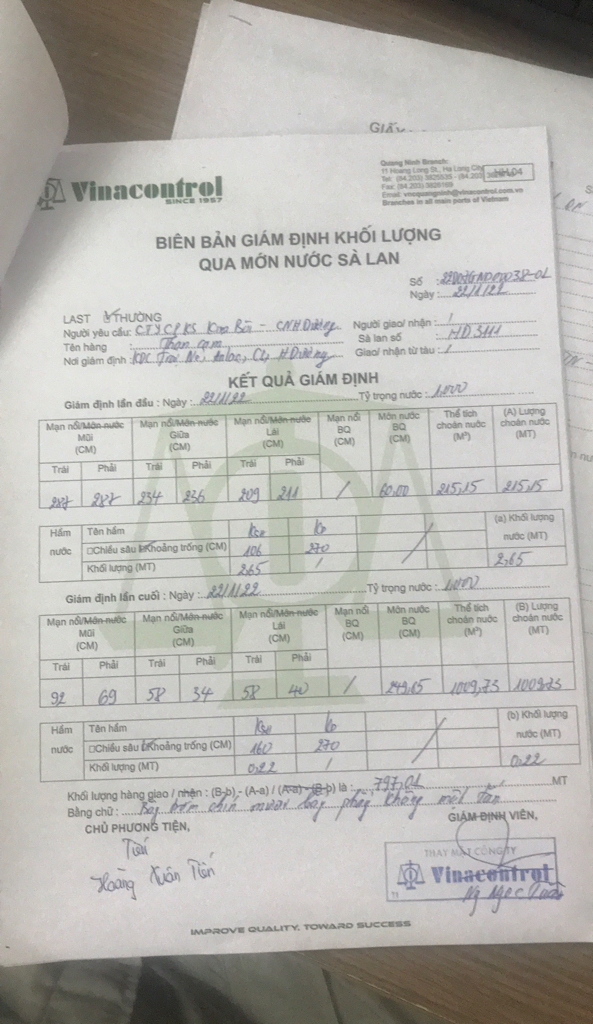 GIẤY
Vinacontrol
SINCE 1957
Quang Ninh Branch:
11 Hoang Long St., Ha Long City
Tel: (84.203)
Fax: (84.203)
Branches in all main ports of Vietnam
BIÊN BẢN GIÁM ĐỊNH KHỐI LƯỢNG
QUA MỚN NƯỚC SÀ LAN
Số :
Ngày: 22/1/22
LAST THƯỜNG
Người yêu cầu: CTYCPKS Kim Bôi - CNHDương Người giao/ nhận : /
Tên hàng : Than cám Sà lan số : HD3111
Nơi giám định : HDương Giao/ nhận từ tàu : /
KẾT QUẢ GIÁM ĐỊNH
Giám định lần đầu : Ngày : 22/1/22 Tỷ trọng nước : 1,000
Mạn nổi/Mớn nước Mũi (CM) Mạn nổi/Mớn nước Giữa (CM) Mạn nổi/Mớn nước Lái (CM) Mạn nổi BQ (CM) Mớn nước BQ (CM) Thể tích choán nước (M³) (A) Lượng choán nước (MT)
Trái Phải Trái Phải Trái Phải
287 287 234 236 209 211 / 60,00 215,15 215,15
Hầm nước Tên hầm (a) Khối lượng nước (MT)
□Chiều sâu Khoảng trống (CM) 106 270
Khối lượng (MT) 2,65 / 2,65
Giám định lần cuối : Ngày : 22/1/22 Tỷ trọng nước : 1,000
Mạn nổi/Mớn nước Mũi (CM) Mạn nổi/Mớn nước Giữa (CM) Mạn nổi/Mớn nước Lái (CM) Mạn nổi BQ (CM) Mớn nước BQ (CM) Thể tích choán nước (M³) (B) Lượng choán nước (MT)
Trái Phải Trái Phải Trái Phải
92 69 58 34 58 40 / 249,15 1009,73 1009,73
Hầm nước Tên hầm (b) Khối lượng nước (MT)
□Chiều sâu Khoảng trống (CM) 160 270
Khối lượng (MT) 0,22 / 0,22
Khối lượng hàng giao / nhận : (B-b) - (A-a) / (A-a) - (B-b) là : 797,01 MT
Bằng chữ : Bảy trăm chín mươi bảy phẩy không một tấn
CHỦ PHƯƠNG TIỆN, GIÁM ĐỊNH VIÊN,
Tiến
Hoàng Xuân Tiến
THAY MẶT CÔNG TY
Vinacontrol
Ng Ngọc
IMPROVE QUALITY, TOWARD SUCCESS